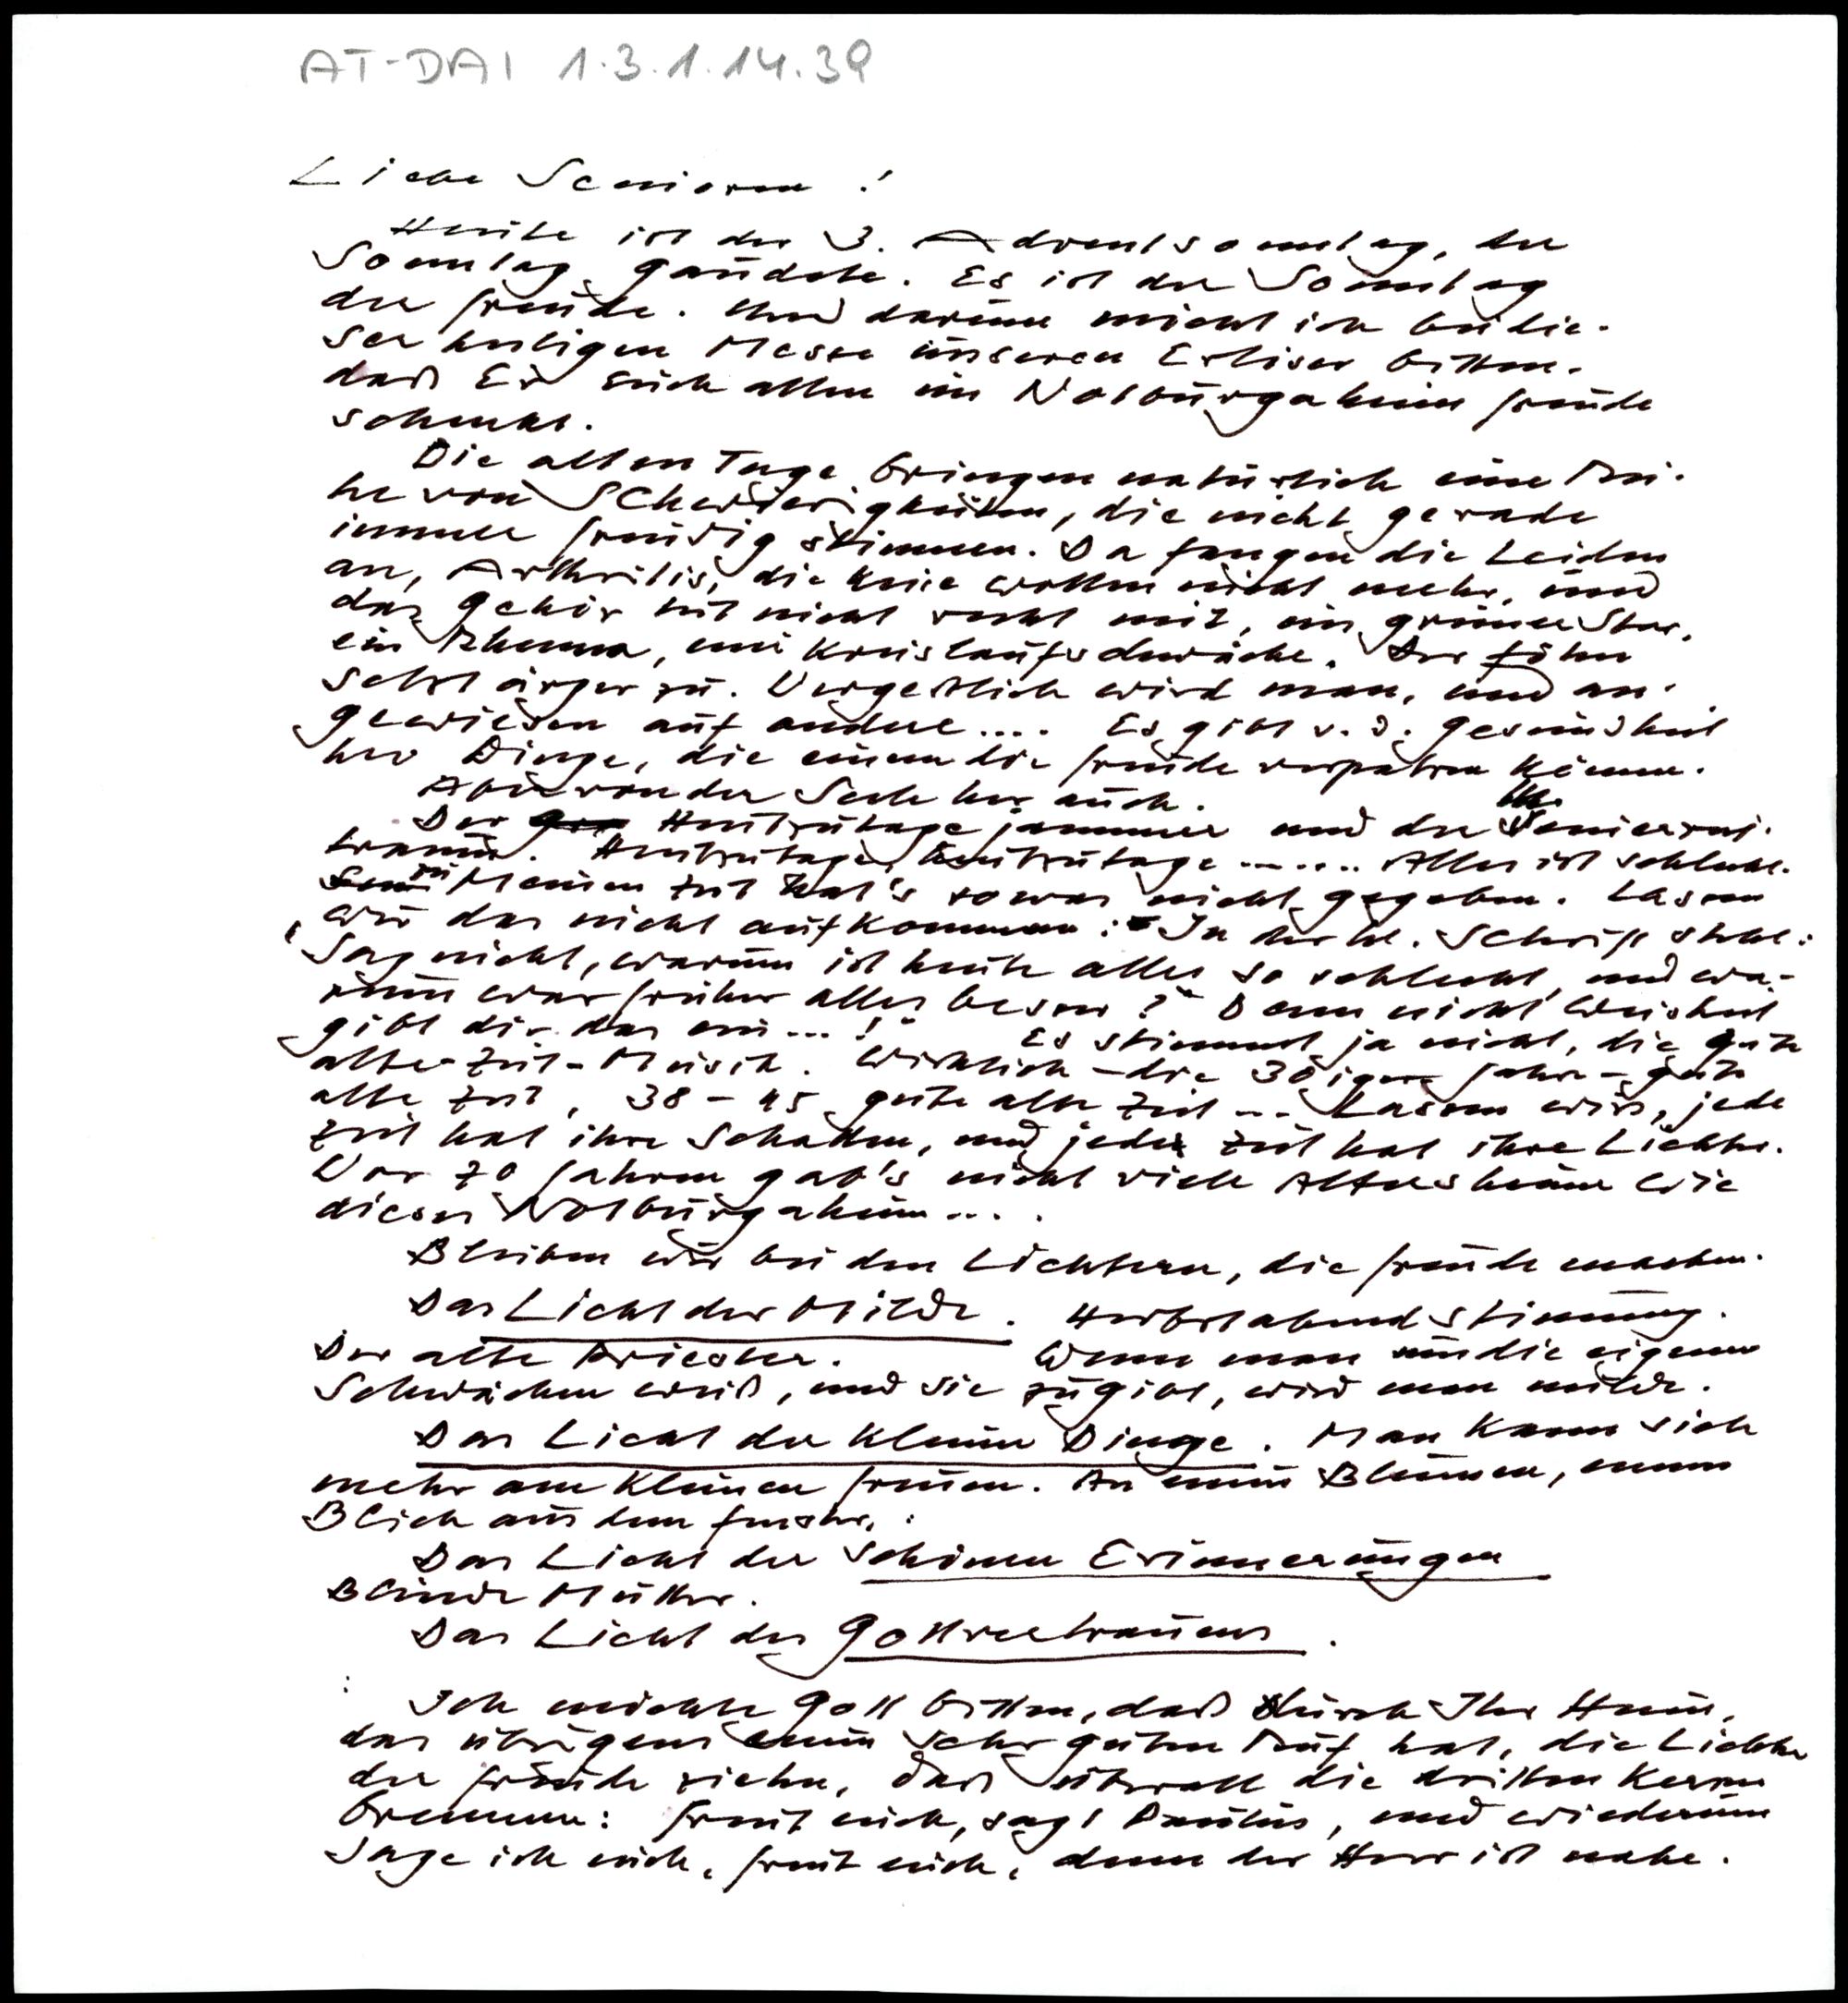 AT-DAI 1.3.1.14.39
Liebe Senioren !
Heute ist der 3. Adventsonntag, der
Sonntag Gaudete. Es ist der Sonntag
der Freude. Und darum möcht ich bei die-
ser heiligen Messe unseren Erlöser bitten.
daß Er Euch allen im Notburgaheim Freude
schenkt.
Die alten Tage bringen natürlich eine Rei-
he von Schwierigkeiten, die nicht gerade
immer freudig stimmen. Da fangen die Leiden
an, Arthritis, die Knie wollen nicht mehr, und
das Gehör tut nicht recht mit, ein grüner Star,
ein Rheuma, eine Kreislaufschwäche. Der Föhn
setzt ärger zu. Vergeßlich wird man, und an-
gewiesen auf andere .... Es gibt v. d. Gesundheit
her Dinge, die einem die Freude verpatzen können.
Aber von der Seele her auch.
Der Heutzutagejammer und der
. Heutzutage, heutzutage ...... Alles ist schlecht.
zu Meinen Zeit hat's sowas nicht gegeben. Lassen
wir das nicht aufkommen: In der hl. Schrift steht:
"Sag nicht, warum ist heute alles so schlecht, und wa-
rum war früher alles besser?" Denn nicht Weisheit
gibt dir das ein...!" Es stimmt ja nicht, die gute
alte-Zeit-Musik. Wirklich - die 30iger Jahre - gute
alte Zeit, 38 - 45 gute alte Zeit ... Lassen wir's, jede
Zeit hat ihre Schatten, und jede Zeit hat ihre Lichter.
Vor 70 Jahren gab's nicht viele Altersheime wie
dieses Notburgaheim ....
Bleiben wir bei den Lichtern, die Freude machen.
Das Licht der Milde. Herbstabendstimmung.
Der alte Priester. Wenn man um die eigenen
Schwächen weiß, und sie zugibt, wird man milde.
Das Licht der kleinen Dinge. Man kann sich
mehr am Kleinen freuen. An einem Blumen, einem
Blick aus dem Fenster. :
Das Licht der schönen Erinnerungen
Blinde Mutter.
Das Licht des Gottvertrauens.
Ich möchte Gott bitten, daß durch Ihr Heim,
das übrigens einen sehr guten Ruf hat, die Lichter
der Freude ziehen, daß überall die dritten Kerzen
brennen: Freut euch, sagt Paulus, und wiederum
sage ich euch, freut euch, denn der Herr ist nahe.